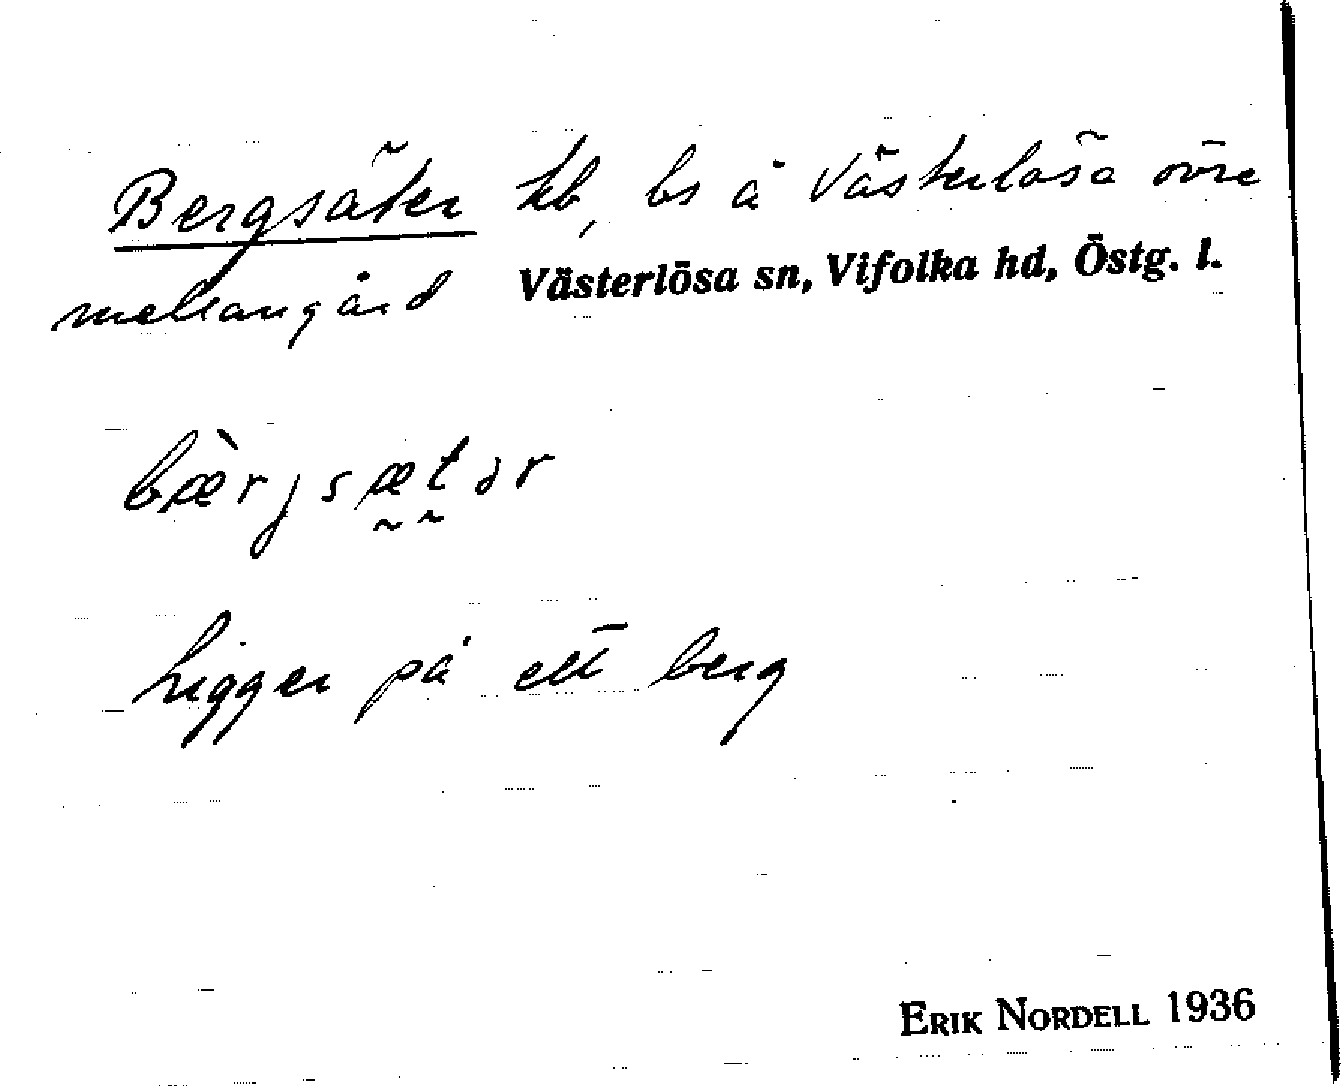 Bergsäter kb, bs å Västerlösa övre
mellangård Västerlösa sn, Vifolka hd, Östg. l.
bæ̀rjsætər
Ligger på ett berg
ERIK NORDELL 1936